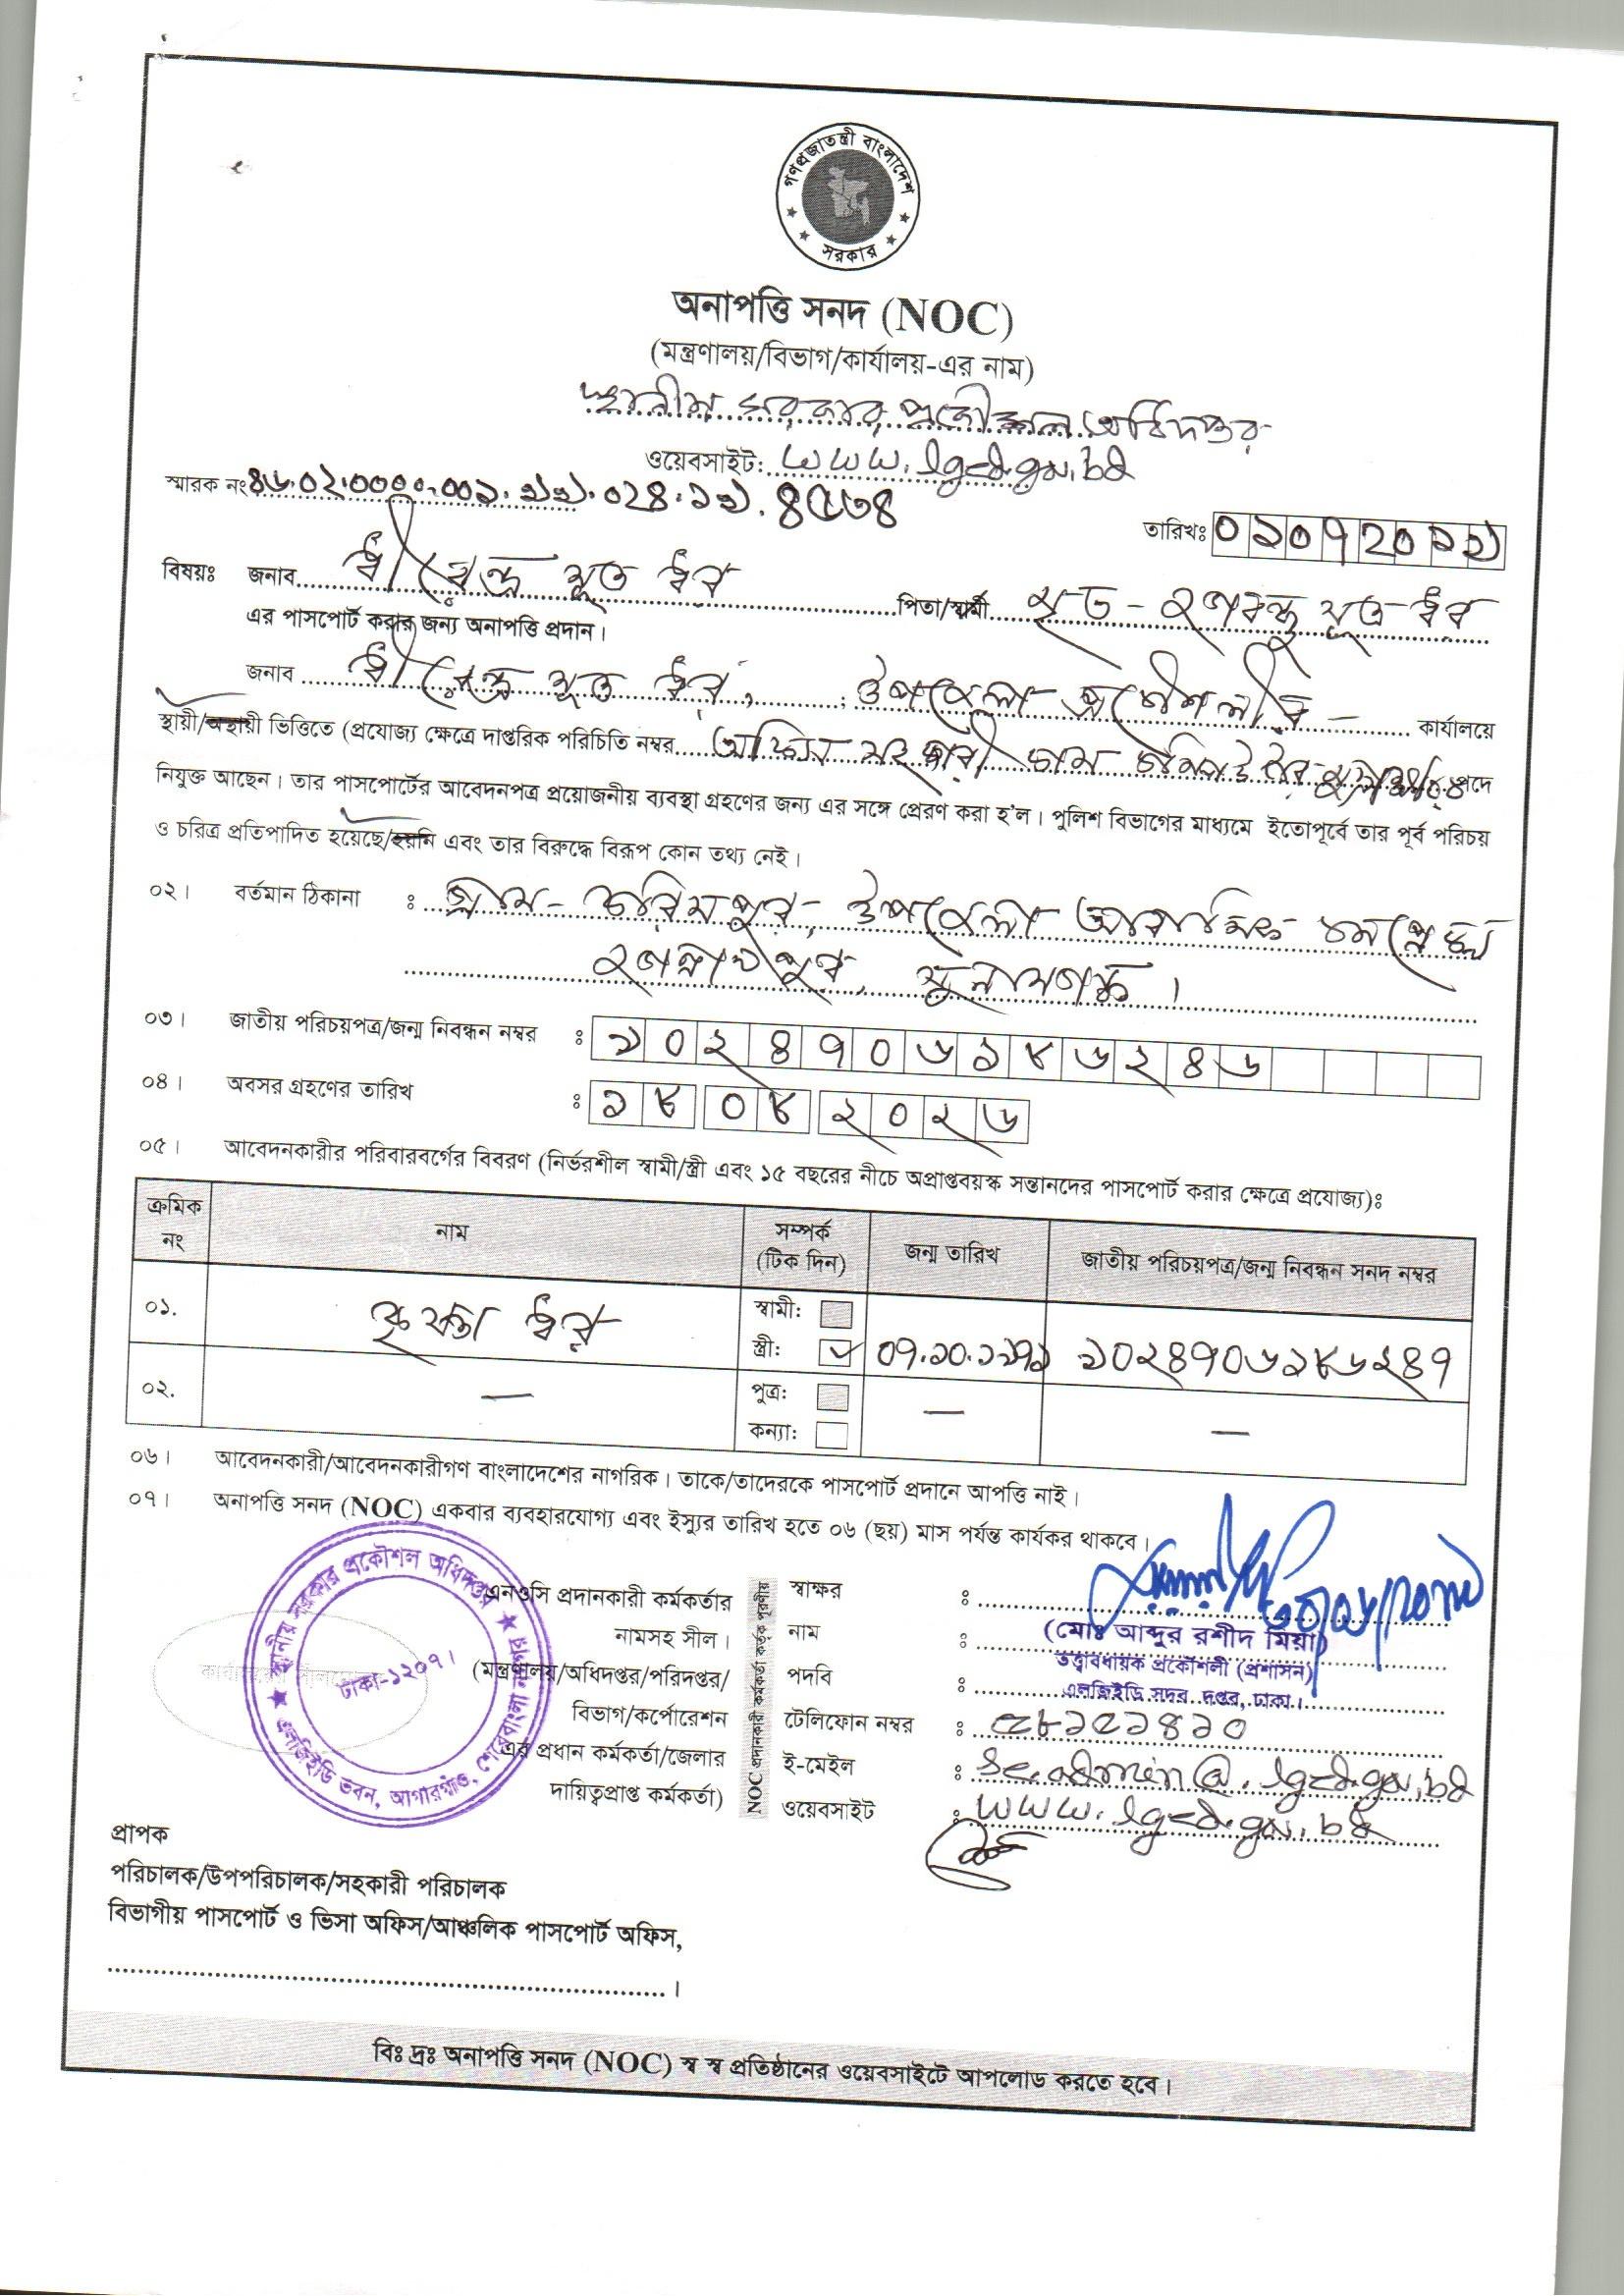 গণপ্রজাতন্ত্রী বাংলাদেশ
সরকার
অনাপত্তি সনদ (NOC)
(মন্ত্রণালয়/বিভাগ/কার্যালয়-এর নাম)
স্থানীয় সরকার প্রকৌশল অধিদপ্তর
ওয়েবসাইট: www.lged.gov.bd
স্মারক নং ৪৬.০২.০০০০.০০১.১১.০২৪.১১.৪৫৩৪
তারিখঃ
বিষয়ঃ জনাব ধীরেন্দ্র সূত্র ধর পিতা/স্বামী মৃত - জগবন্ধু সূত্র ধর
এর পাসপোর্ট করার জন্য অনাপত্তি প্রদান।
জনাব ধীরেন্দ্র সূত্র ধর, উপজেলা প্রকৌশলীর কার্যালয়ে
স্থায়ী/অস্থায়ী ভিত্তিতে (প্রযোজ্য ক্ষেত্রে দাপ্তরিক পরিচিতি নম্বর অফিস সহকারী কাম কম্পিউটার পদে
নিযুক্ত আছেন। তার পাসপোর্টের আবেদনপত্র প্রয়োজনীয় ব্যবস্থা গ্রহণের জন্য এর সঙ্গে প্রেরণ করা হ'ল। পুলিশ বিভাগের মাধ্যমে ইতোপূর্বে তার পূর্ব পরিচয়
ও চরিত্র প্রতিপাদিত হয়েছে/হয়নি এবং তার বিরুদ্ধে বিরূপ কোন তথ্য নেই।
০২। বর্তমান ঠিকানা : গ্রাম- উপজেলা আবাসিক কমপ্লেক্স
জগন্নাথপুর, সুনামগঞ্জ।
০৩। জাতীয় পরিচয়পত্র/জন্ম নিবন্ধন নম্বর : ১০২৪৭০৬১৮৬২৪৬
০৪। অবসর গ্রহণের তারিখ : ১৮ ০৮ ২০২৬
০৫। আবেদনকারীর পরিবারবর্গের বিবরণ (নির্ভরশীল স্বামী/স্ত্রী এবং ১৫ বছরের নীচে অপ্রাপ্তবয়স্ক সন্তানদের পাসপোর্ট করার ক্ষেত্রে প্রযোজ্য)ঃ
ক্রমিক নং নাম সম্পর্ক (টিক দিন) জন্ম তারিখ জাতীয় পরিচয়পত্র/জন্ম নিবন্ধন সনদ নম্বর
০১. ধর স্বামী:
স্ত্রী: ১০২৪৭০৬১৮৬২৪৭
০২. — পুত্র: — —
কন্যা:
০৬। আবেদনকারী/আবেদনকারীগণ বাংলাদেশের নাগরিক। তাকে/তাদেরকে পাসপোর্ট প্রদানে আপত্তি নাই।
০৭। অনাপত্তি সনদ (NOC) একবার ব্যবহারযোগ্য এবং ইস্যুর তারিখ হতে ০৬ (ছয়) মাস পর্যন্ত কার্যকর থাকবে।
স্থানীয় সরকার প্রকৌশল অধিদপ্তর
এলজিইডি ভবন, আগারগাঁও, শেরেবাংলা নগর
ঢাকা-১২০৭।
এনওসি প্রদানকারী কর্মকর্তার
নামসহ সীল।
(মন্ত্রণালয়/অধিদপ্তর/পরিদপ্তর/
বিভাগ/কর্পোরেশন
এর প্রধান কর্মকর্তা/জেলার
দায়িত্বপ্রাপ্ত কর্মকর্তা)
NOC প্রদানকারী কর্মকর্তা কর্তৃক পূরণীয়
স্বাক্ষর :
নাম : (মোঃ আব্দুর রশীদ মিয়া)
পদবি : তত্ত্বাবধায়ক প্রকৌশলী (প্রশাসন)
এলজিইডি সদর দপ্তর, ঢাকা।
টেলিফোন নম্বর :
ই-মেইল : se.admin@lged.gov.bd
ওয়েবসাইট : www.lged.gov.bd
প্রাপক
পরিচালক/উপপরিচালক/সহকারী পরিচালক
বিভাগীয় পাসপোর্ট ও ভিসা অফিস/আঞ্চলিক পাসপোর্ট অফিস,
।
বিঃ দ্রঃ অনাপত্তি সনদ (NOC) স্ব স্ব প্রতিষ্ঠানের ওয়েবসাইটে আপলোড করতে হবে।